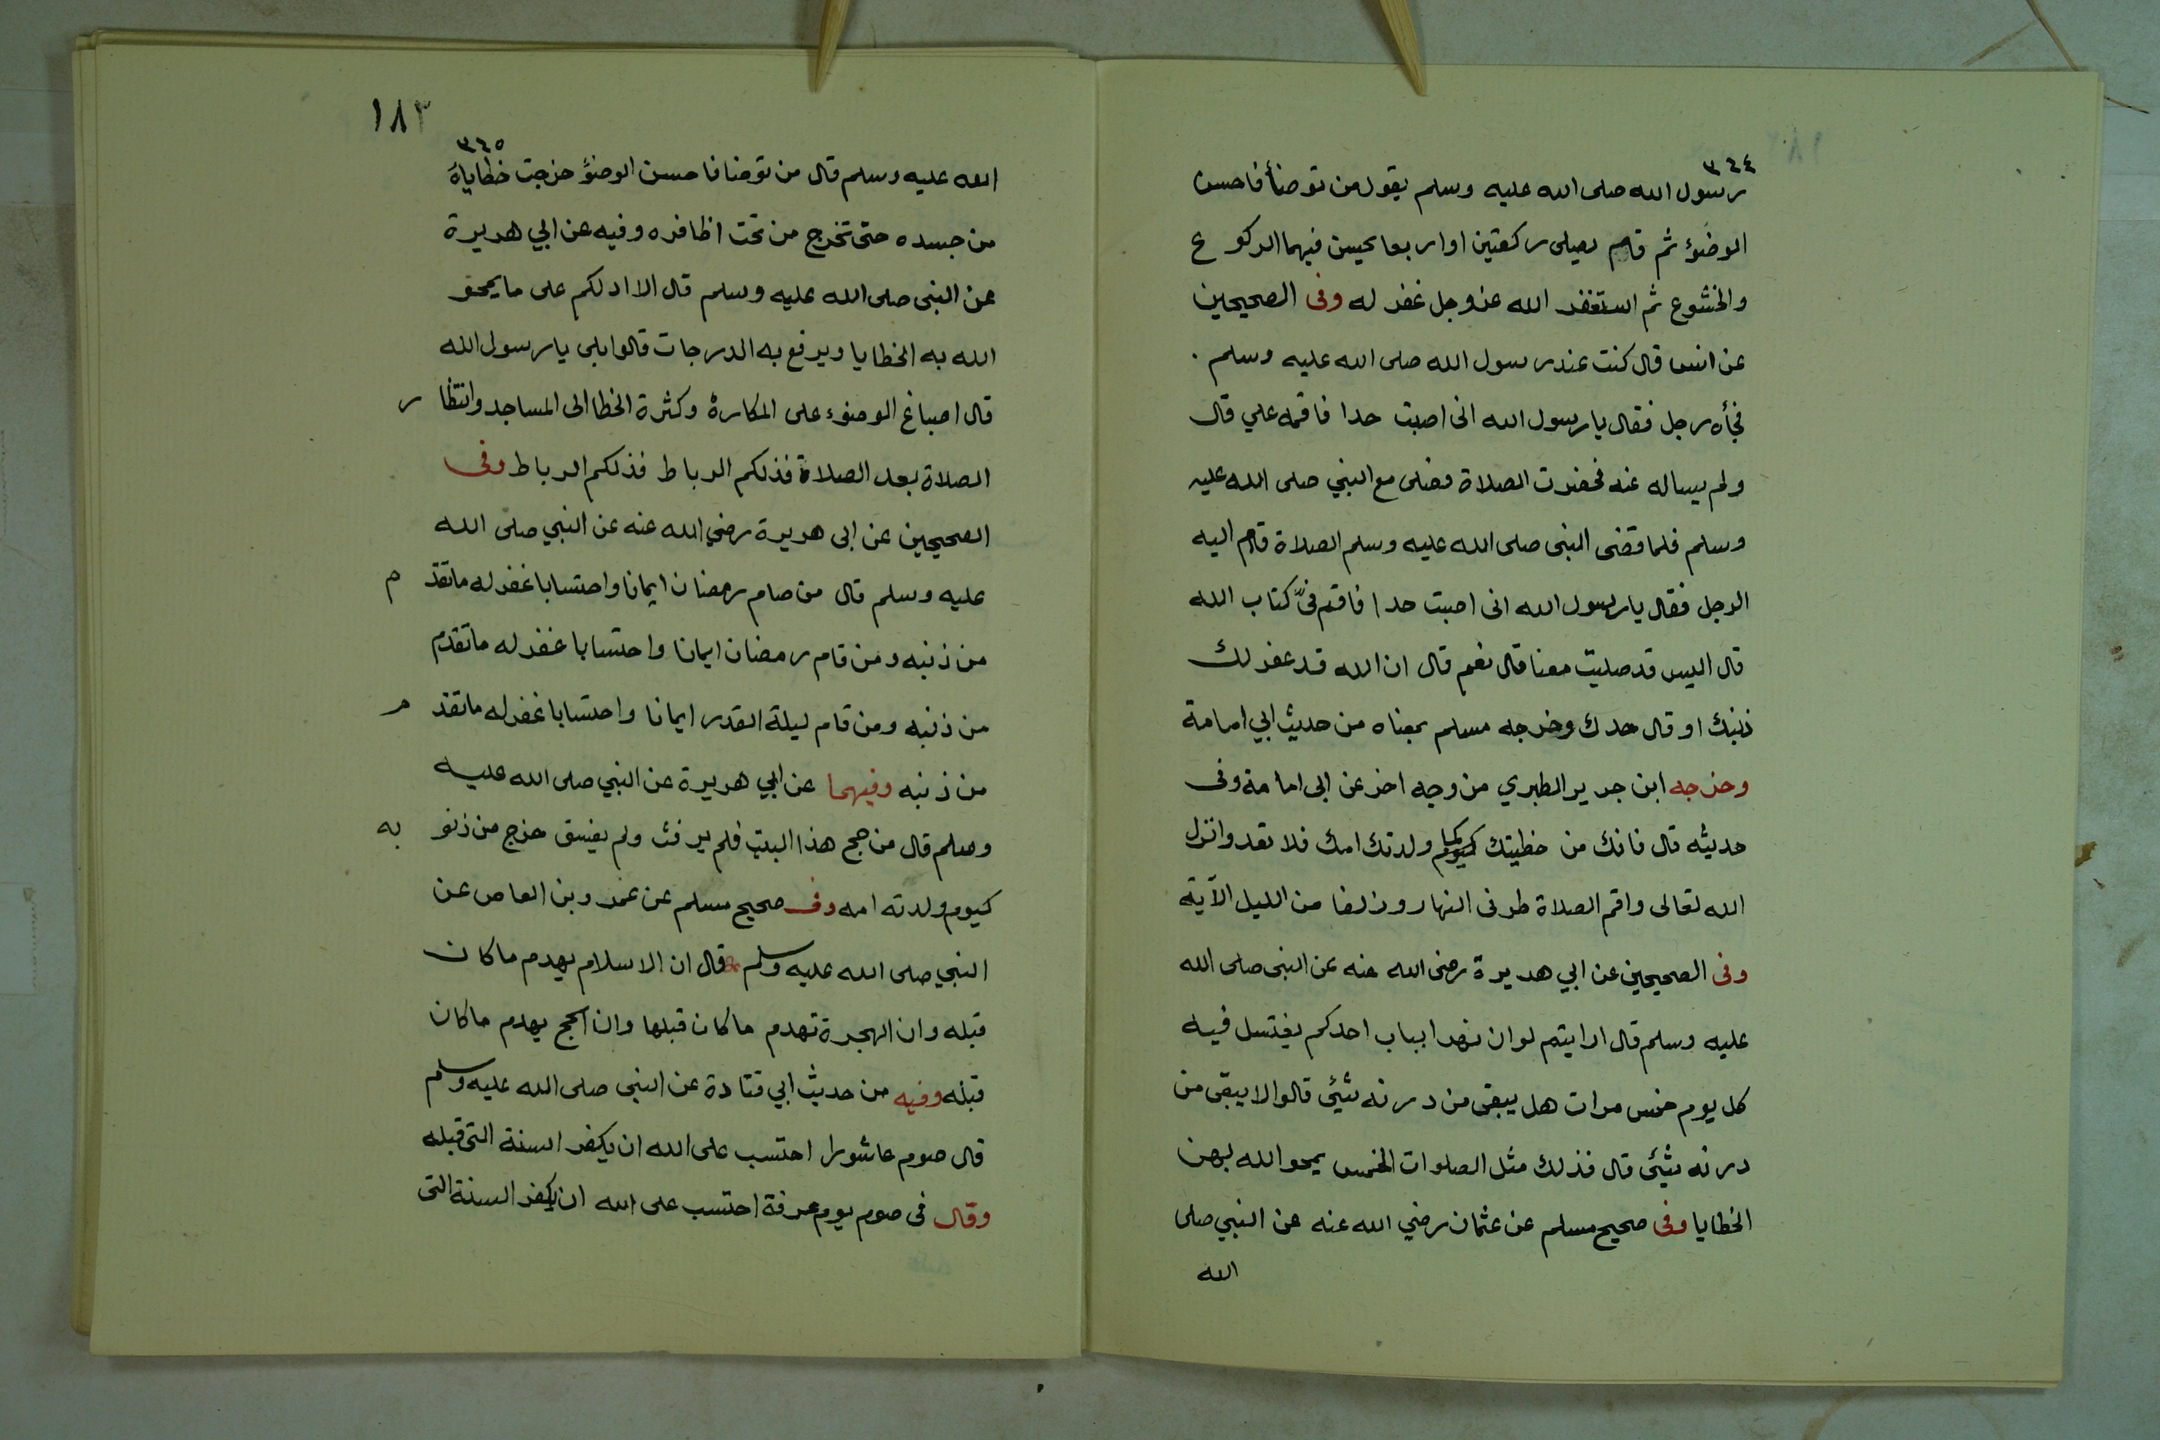 ٣٦٤
رسول الله صلى الله عليه وسلم يقول من توضأ فاحسن
الوضوء ثم قام يصلى ركعتين او اربعا يحسن فيهما الركوع
والخشوع ثم استغفر الله عز وجل غفر له وفى الصحيحين
عن انس قال كنت عند رسول الله صلى الله عليه وسلم .
فجأه رجل فقال يا رسول الله انى اصبت حدا فاقمه علي قال
ولم يساله عنه فحضرت الصلاة فصلى مع النبي صلى الله عليه
وسلم فلما قضى النبى صلى الله عليه وسلم الصلاة قام اليه
الرجل فقال يا رسول الله انى اصبت حدا فاقم فىَّ كتاب الله
قال اليس قد صليت معنا قال نعم قال ان الله قد غفر لك
ذنبك او قال حدك وخرجه مسلم بمعناه من حديث ابي امامة
وخرجه ابن جرير الطبري من وجه اخر عن ابى امامة وفى
حديثه قال فانك من خطيتك كيوم ولدتك امك فلا تعد وانزل
الله تعالى واقم الصلاة طرفى النهار وزلفا من الليل الآية
وفى الصحيحين عن ابي هريرة رضى الله عنه عن النبى صلى الله
عليه وسلم قال ارايتم لو ان نهرا بباب احدكم يغتسل فيه
كل يوم خمس مرات هل يبقى من درنه شئى قالوا لا يبقى من
درنه شئى قال فذلك مثل الصلوات الخمس يمحو الله بهن
الخطايا وفى صحيح مسلم عن عثمان رضي الله عنه عن النبي صلى
الله
١٨٣
٣٦٥
الله عليه وسلم قال من توضا فاحسن الوضؤ خرجت خطاياه
من جسده حتى تخرج من تحت اظافره وفيه عن ابي هريرة
عن النبى صلى الله عليه وسلم قال الا ادلكم على ما يمحو
الله به الخطايا ويرفع به الدرجات قالوا بلى يا رسول الله
قال اصباغ الوضوء على المكارة وكثرة الخطا الى المساجد وانتظار
الصلاة بعد الصلاة فذلكم الرباط فذلكم الرباط وفى
الصحيحين عن ابى هريرة رضي الله عنه عن النبي صلى الله
عليه وسلم قال من صام رمضان ايمانا واحتسابا غفر له ما تقدم
من ذنبه ومن قام رمضان ايمانا واحتسابا غفر له ما تقدم
من ذنبه ومن قام ليلة القدر ايمانا واحتسابا غفر له ما تقدم
من ذنبه وفيهما عن ابي هريرة عن النبي صلى الله عليه
وسلم قال من حج هذا البيت فلم يرفث ولم يفسق خرج من ذنوبه
كيوم ولدته امه وفى صحيح مسلم عن عمرو بن العاص عن
النبي صلى الله عليه وسلم قال ان الاسلام يهدم ما كان
قبله وان الهجرة تهدم ما كان قبلها وان الحج يهدم ما كان
قبله وفيه من حديث ابي قتادة عن النبى صلى الله عليه وسلم
قال صوم عاشورا احتسب على الله ان يكفر السنة التى قبله
وقال فى صوم يوم عرفة احتسب على الله ان يكفر السنة التى